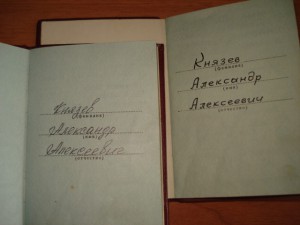 Князев
(фамилия)
Александр
(имя)
Алексеевич
(отчество)
Князев
(фамилия)
Александр
(имя)
Алексеевич
(отчество)